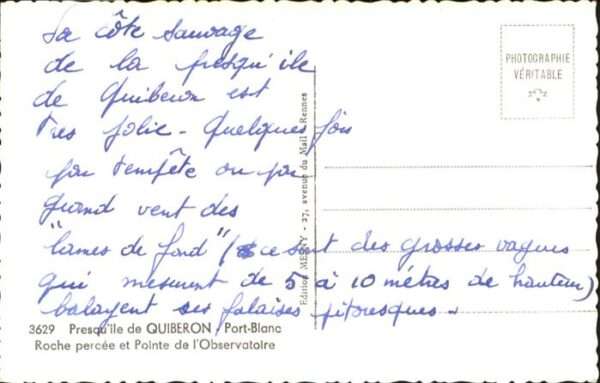 La côte sauvage
de la presqu'ile
de Quiberon est
tres jolie - Quelques fois
par tempête ou par
grand vent des
"lames de fond" (ce sont des grosses vagues
qui mesurent de 5 à 10 mètres de hauteur)
balayent ses falaises pitoresques -
PHOTOGRAPHIE
VÉRITABLE
Edition MESNY - 27, avenue du Mail - Rennes
3629 Presqu'île de QUIBERON - Port-Blanc
Roche percée et Pointe de l'Observatoire